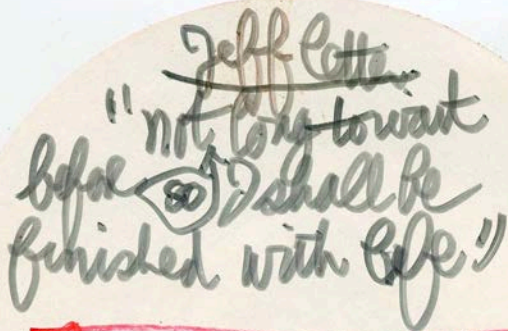 Jeff Cotter
"not long to wait
before 80 I shall be
finished with life"